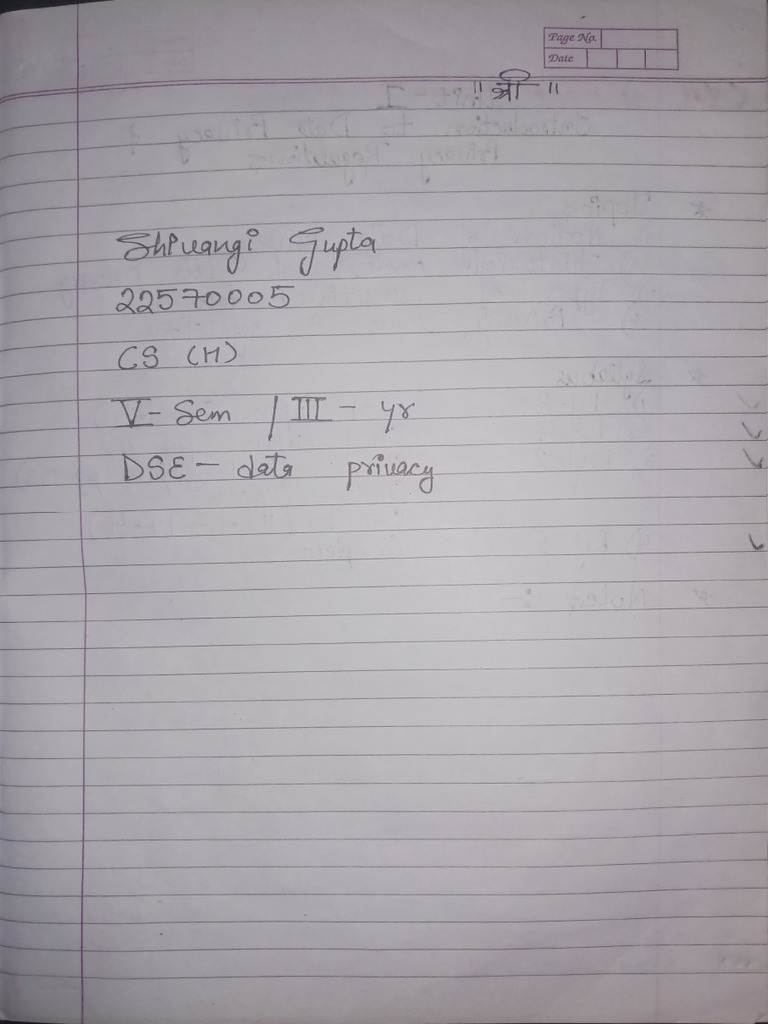 Page No.
Date
"श्री"
Shivangi Gupta
22570005
CS (H)
V-Sem / III - yr
DSE - data privacy